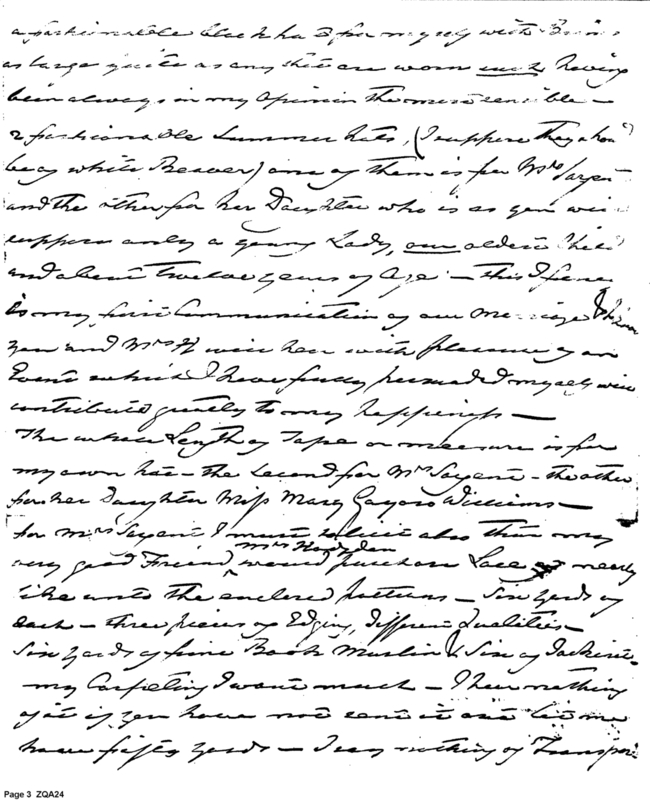 a fashionable black hat for myself with Brims
as large quite as any that are worn such having
been always in my Opinion the most sensible —
2 fashionable Summer hats, (I suppose they shou
be of white Beaver) one of them is for Mrs Sargen
and the other for her Daughter who is as you wi
suppose only a young Lady, our oldest Child
and about twelve years of Age — this I fancy
is my first Communication of our Marriage & I know
you and Mrs H will hear with pleasure of an
Event which I have fully persuaded myself will
contribute greatly to my happiness —
The whole Length of Tape or measure is for
my own hat — the second for Mrs Sargent — the other
for her Daughter Miss Mary Gayoso Williams —
for Mrs Sargent I must solicit also that my
very good Friend Mrs would purchase Lace as nearly
like unto the enclosed patterns — Six yards of
each — three pieces of Edging, different Qualities —
Six yards of fine Book Muslin & Six of Jackinet —
my Carpeting I want much — I hear nothing
of it if you have not sent it out let me
have fifty yards — I say nothing of Transpor
Page 3 ZQA24